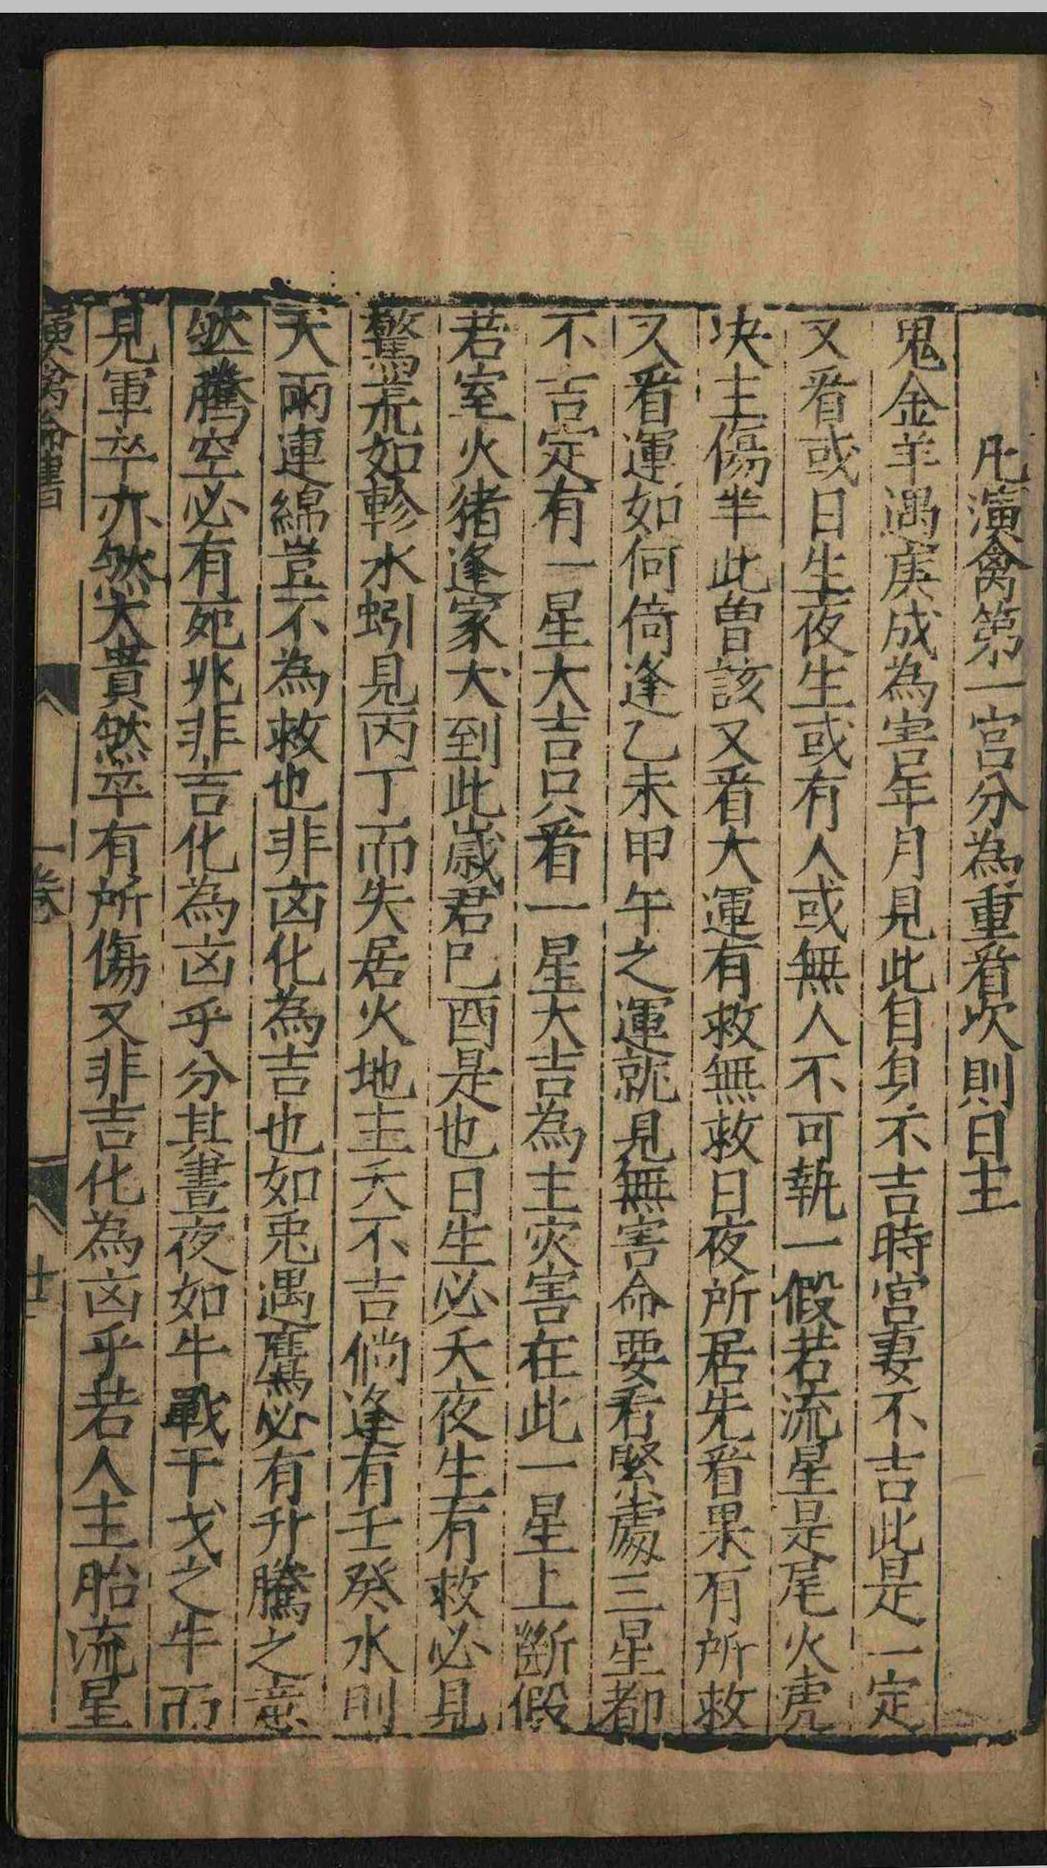 凡演禽第一宮分為重看次則日主
鬼金羊遇庚戍為害年月見此自身不吉時宮妻不吉此是一定
又看或日生夜生或有人或無人不可執一假若流星是尾火虎
决主傷羊此曾該又看大運有救無救日夜所居先看果有所救
又看運如何倚逢乙未甲午之運就見無害命要看緊處三星都
不吉定有一星大吉只看一星大吉為主灾害在此一星上断假
若室火猪逢家犬到此歲君巳酉是也日生必夭夜生有救必見
驚荒如軫水蚓見丙丁而失居火地主夭不吉倘逢有壬癸水則
天雨連綿豈不為救也非凶化為吉也如兎遇鷹必有升騰之意
然騰空必有死兆非吉化為凶乎分其晝夜如牛戰干戈之牛而
見軍卒亦然大貴然卒有所傷又非吉化為凶乎若人主胎流星
演禽 書 一卷 廿